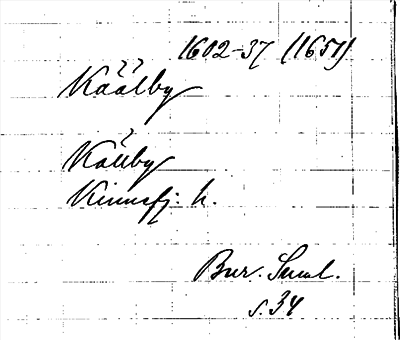 1602-37 (1651)
Kåålby
Kållby
Kinnefj: h.
Bur. Suml.
s. 34